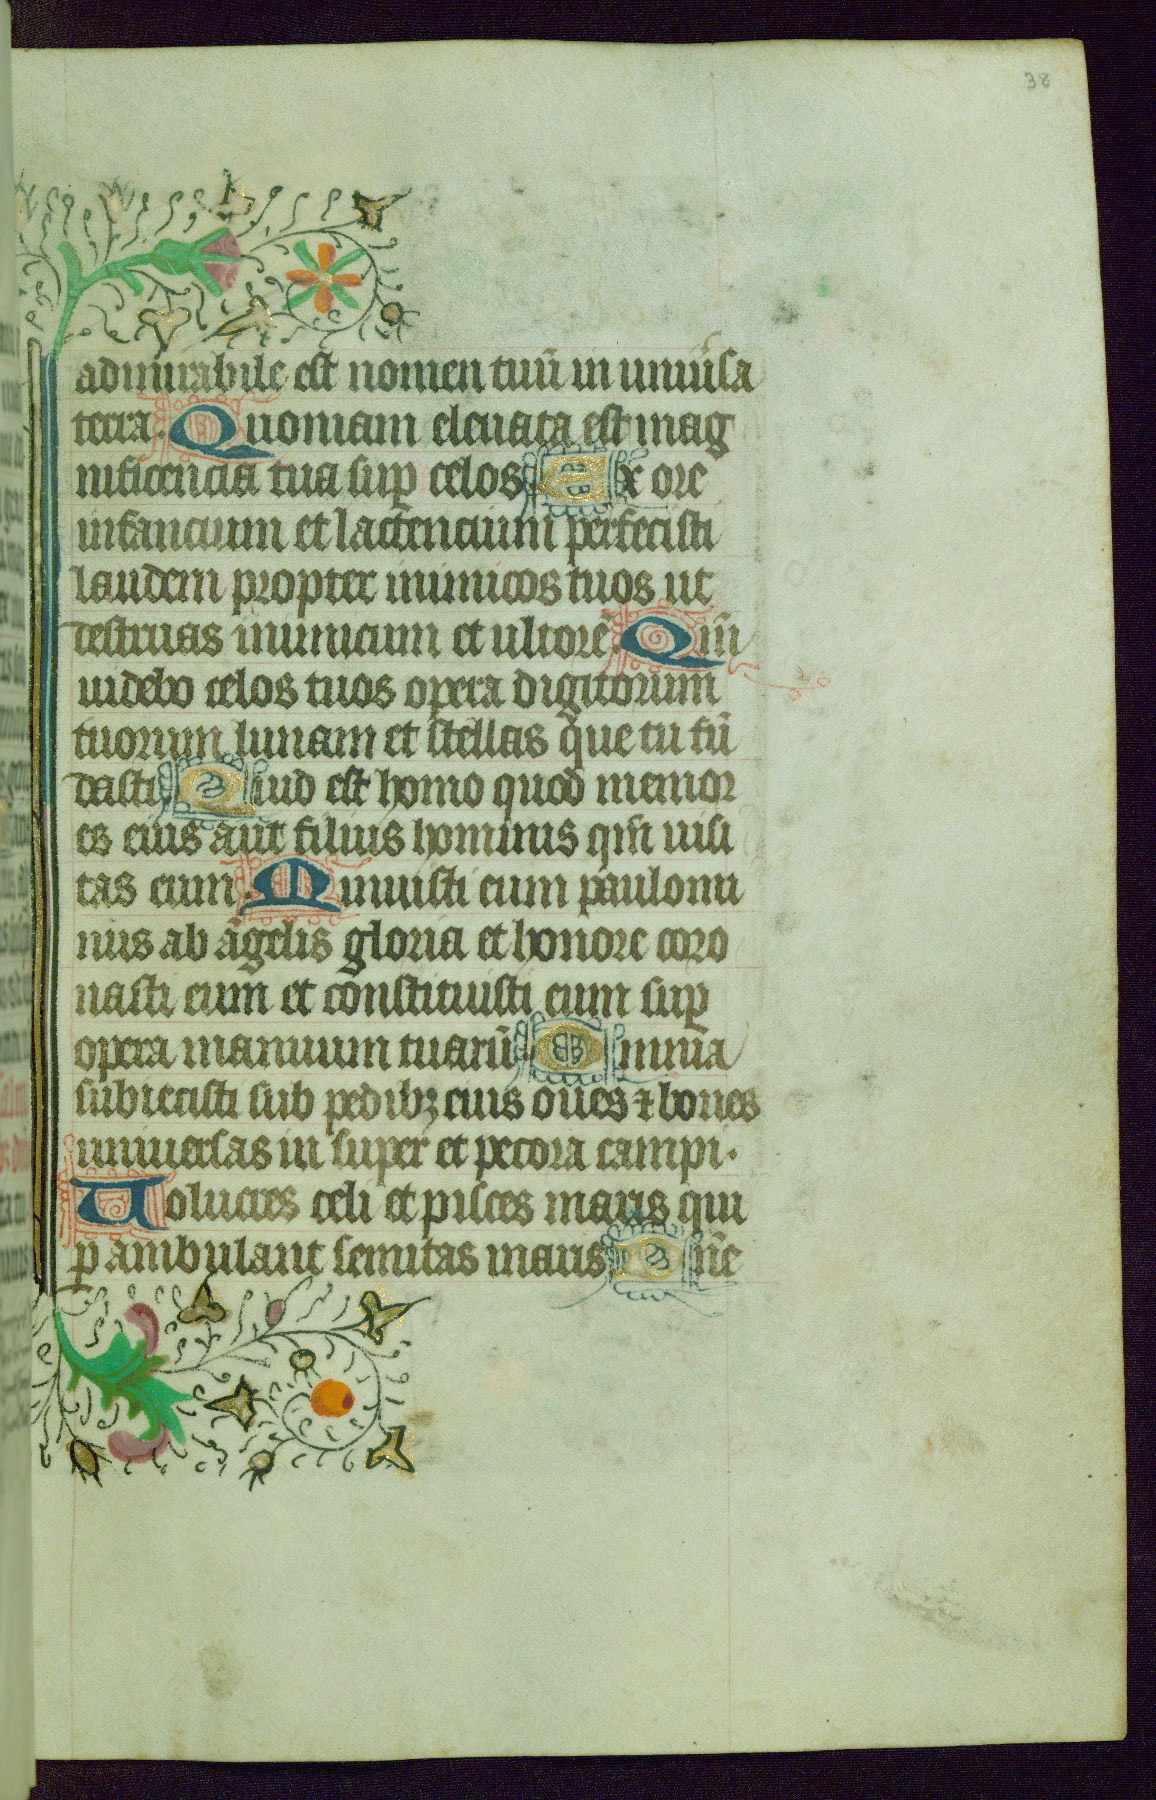 38
admirabile est nomen tuū in uniūsa
terra. Quoniam eleuata est mag
nificencia tua suꝑ celos. Ex ore
infancium et lactencium perfecisti
laudem propter inimicos tuos ut
destruas inimicum et ultorē. Qm̄
uidebo celos tuos opera digitorum
tuorum lunam et stellas que tu fū
dasti. Quid est homo quod memor
es eius aut filius hominis qm̄ uisi
tas eum. Minuisti eum paulomi
nus ab āgelis gloria et honore coro
nasti eum et constituisti eum suꝑ
opera manuum tuarū. Omnia
subiecisti sub pedibꝫ eius oues ⁊ boues
uniuersas in super et pecora campi.
Uolucres celi et pisces maris qui
ꝑ ambulant semitas maris. Dn̄e